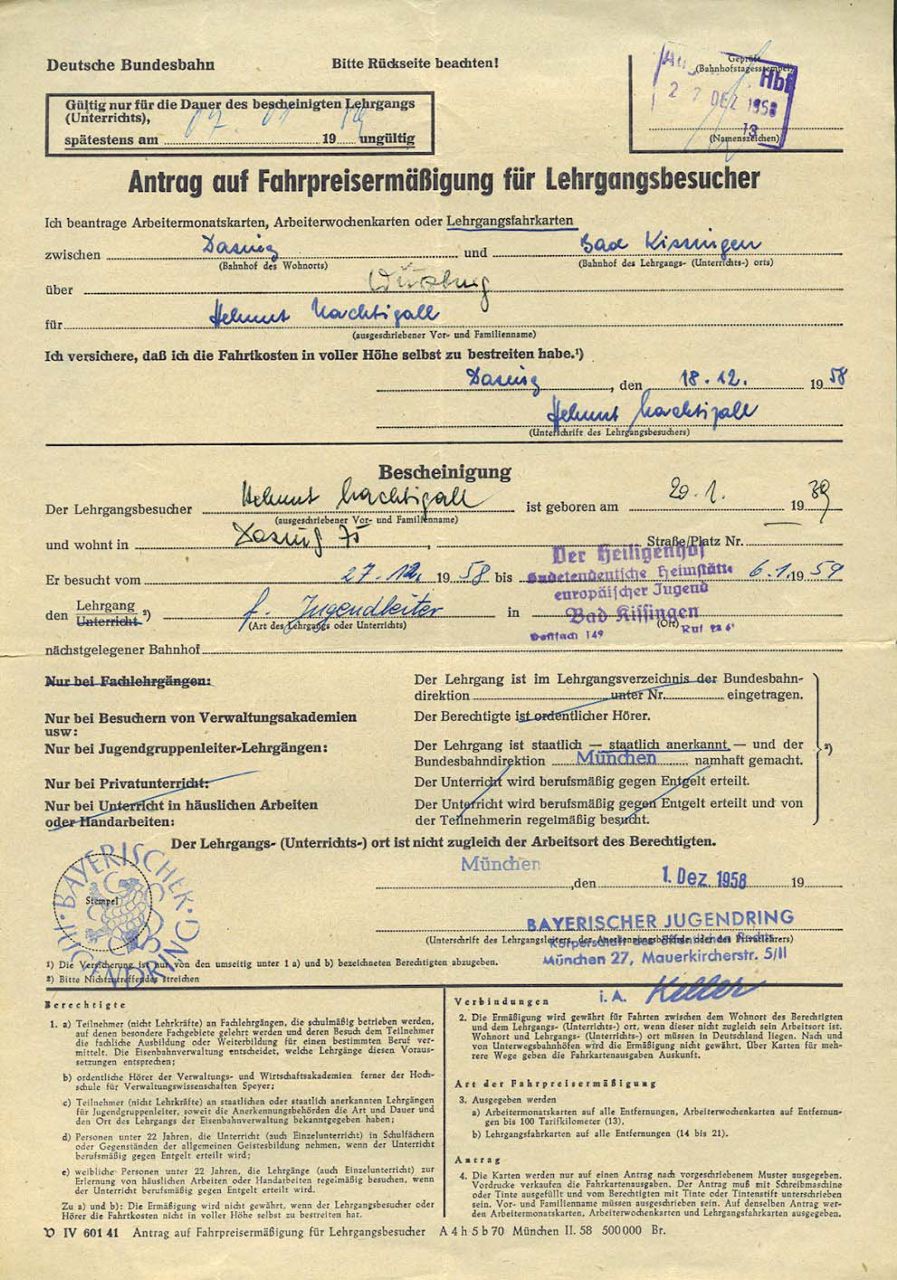 Deutsche Bundesbahn
Bitte Rückseite beachten!
Geprüft
(Bahnhofstagesstempel)
Hbf
27 DEZ 1958
13
(Namenszeichen)
Gültig nur für die Dauer des bescheinigten Lehrgangs
(Unterrichts),
spätestens am 07. 01 1959 ungültig
Antrag auf Fahrpreisermäßigung für Lehrgangsbesucher
Ich beantrage Arbeitermonatskarten, Arbeiterwochenkarten oder Lehrgangsfahrkarten
zwischen Dasing und Bad Kissingen
(Bahnhof des Wohnorts) (Bahnhof des Lehrgangs- (Unterrichts-) orts)
über Würzburg
für Helmut Nachtigall
(ausgeschriebener Vor- und Familienname)
Ich versichere, daß ich die Fahrtkosten in voller Höhe selbst zu bestreiten habe.¹)
Dasing, den 18.12. 1958
Helmut Nachtigall
(Unterschrift des Lehrgangsbesuchers)
Bescheinigung
Der Lehrgangsbesucher Helmut Nachtigall ist geboren am 20.1. 1939
(ausgeschriebener Vor- und Familienname)
und wohnt in Dasing 75, Straße/Platz Nr.
Er besucht vom 27.12. 1958 bis 6.1. 1959
Der Heiligenhof
Sudetendeutsche Heimstätte
europäischer Jugend
Bad Kissingen
Postfach 149 Ruf
den Lehrgang
Unterricht ²) f. Jugendleiter in
(Art des Lehrgangs oder Unterrichts) (Ort)
nächstgelegener Bahnhof
Nur bei Fachlehrgängen: Der Lehrgang ist im Lehrgangsverzeichnis der Bundesbahn-
direktion unter Nr. eingetragen.
Nur bei Besuchern von Verwaltungsakademien
usw: Der Berechtigte ist ordentlicher Hörer.
Nur bei Jugendgruppenleiter-Lehrgängen: Der Lehrgang ist staatlich — staatlich anerkannt — und der
Bundesbahndirektion München namhaft gemacht. ²)
Nur bei Privatunterricht: Der Unterricht wird berufsmäßig gegen Entgelt erteilt.
Nur bei Unterricht in häuslichen Arbeiten
oder Handarbeiten: Der Unterricht wird berufsmäßig gegen Entgelt erteilt und von
der Teilnehmerin regelmäßig besucht.
Der Lehrgangs- (Unterrichts-) ort ist nicht zugleich der Arbeitsort des Berechtigten.
München, den 1. Dez. 1958 19
BAYERISCHER JUGENDRING
Stempel
BAYERISCHER JUGENDRING
(Unterschrift des Lehrgangsleiters, der Anerkennungsbehörde oder des Privatlehrers)
Körperschaft des öffentlichen Rechts
München 27, Mauerkircherstr. 5/II
i. A. Keller
¹) Die Versicherung ist nur von den umseitig unter 1 a) und b) bezeichneten Berechtigten abzugeben.
²) Bitte Nichtzutreffendes streichen
Berechtigte
1. a) Teilnehmer (nicht Lehrkräfte) an Fachlehrgängen, die schulmäßig betrieben werden,
auf denen besondere Fachgebiete gelehrt werden und deren Besuch dem Teilnehmer
die fachliche Ausbildung oder Weiterbildung für einen bestimmten Beruf ver-
mittelt. Die Eisenbahnverwaltung entscheidet, welche Lehrgänge diesen Voraus-
setzungen entsprechen;
b) ordentliche Hörer der Verwaltungs- und Wirtschaftsakademien ferner der Hoch-
schule für Verwaltungswissenschaften Speyer;
c) Teilnehmer (nicht Lehrkräfte) an staatlichen oder staatlich anerkannten Lehrgängen
für Jugendgruppenleiter, soweit die Anerkennungsbehörden die Art und Dauer und
den Ort des Lehrgangs der Eisenbahnverwaltung bekanntgegeben haben;
d) Personen unter 22 Jahren, die Unterricht (auch Einzelunterricht) in Schulfächern
oder Gegenständen der allgemeinen Geistesbildung nehmen, wenn der Unterricht
berufsmäßig gegen Entgelt erteilt wird;
e) weibliche Personen unter 22 Jahren, die Lehrgänge (auch Einzelunterricht) zur
Erlernung von häuslichen Arbeiten oder Handarbeiten regelmäßig besuchen, wenn
der Unterricht berufsmäßig gegen Entgelt erteilt wird.
Zu a) und b): Die Ermäßigung wird nicht gewährt, wenn der Lehrgangsbesucher oder
Hörer die Fahrtkosten nicht in voller Höhe selbst zu bestreiten hat.
Verbindungen
2. Die Ermäßigung wird gewährt für Fahrten zwischen dem Wohnort des Berechtigten
und dem Lehrgangs- (Unterrichts-) ort, wenn dieser nicht zugleich sein Arbeitsort ist.
Wohnort und Lehrgangs- (Unterrichts-) ort müssen in Deutschland liegen. Nach und
von Unterwegsbahnhöfen wird die Ermäßigung nicht gewährt. Über Karten für meh-
rere Wege geben die Fahrkartenausgaben Auskunft.
Art der Fahrpreisermäßigung
3. Ausgegeben werden
a) Arbeitermonatskarten auf alle Entfernungen, Arbeiterwochenkarten auf Entfernun-
gen bis 100 Tarifkilometer (13).
b) Lehrgangsfahrkarten auf alle Entfernungen (14 bis 21).
Antrag
4. Die Karten werden nur auf einen Antrag nach vorgeschriebenem Muster ausgegeben.
Vordrucke verkaufen die Fahrkartenausgaben. Der Antrag muß mit Schreibmaschine
oder Tinte ausgefüllt und vom Berechtigten mit Tinte oder Tintenstift unterschrieben
sein. Vor- und Familienname müssen ausgeschrieben sein. Auf denselben Antrag wer-
den Arbeitermonatskarten, Arbeiterwochenkarten und Lehrgangsfahrkarten ausgegeben.
IV 601 41 Antrag auf Fahrpreisermäßigung für Lehrgangsbesucher A 4 h 5 b 70 München II. 58 500 000 Br.